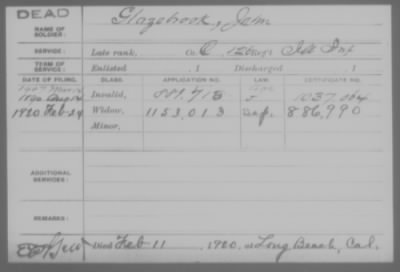 DEAD
NAME OF SOLDIER: Glazebrook, John
SERVICE: Late rank, Co. C, 126 Reg't Ill Inf
TERM OF SERVICE: Enlisted , 1 Discharged , 1
DATE OF FILING. CLASS. APPLICATION NO. LAW. CERTIFICATE NO.
1890 Aug Invalid, 881.713 1037.064
1920 Feb-24 Widow, 1153,013 886,990
Minor,
ADDITIONAL SERVICES:
REMARKS:
Died Feb 11, 1920, at Long Beach, Cal.